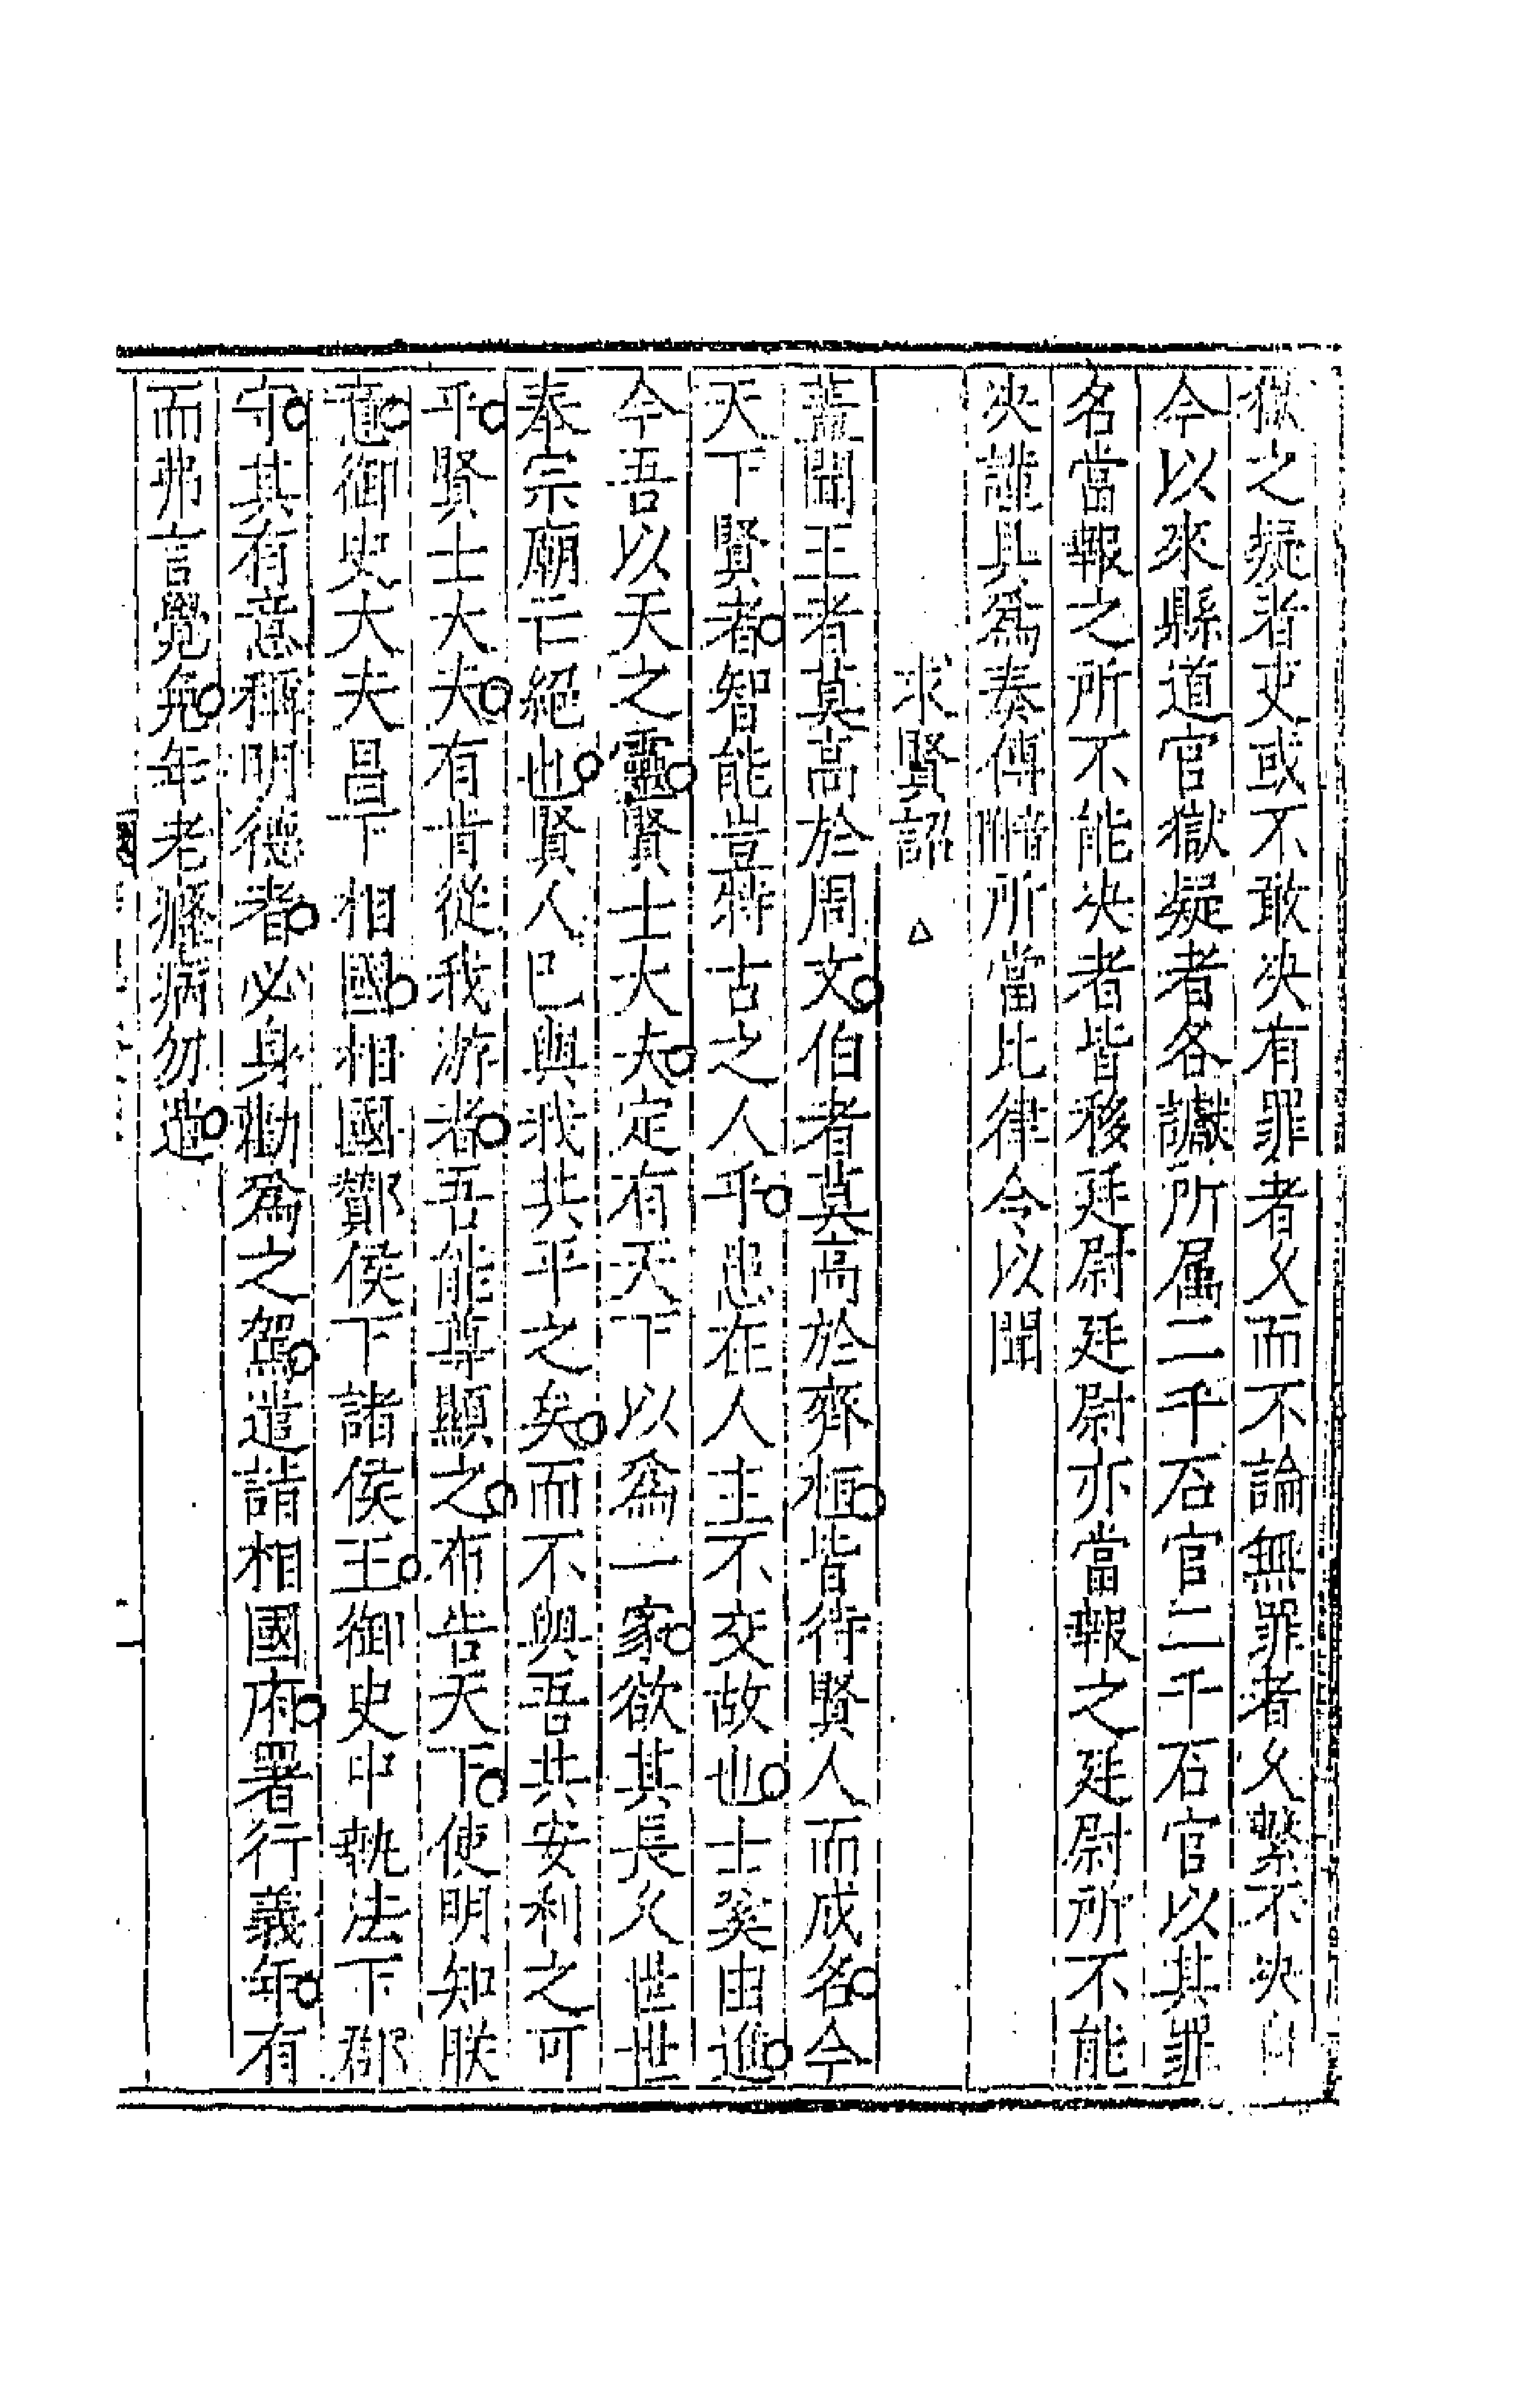 獄之疑者吏或不敢决有罪者乆而不論無罪者乆繫不决自
今以來縣道官獄疑者各讞所属二千石官二千石官以其罪
名當報之所不能决者皆移廷尉廷尉亦當報之廷尉所不能
决謹具爲奏傅所當比律令以聞
求賢詔
葢聞王者莫高於周文伯者莫高於齊桓皆待賢人而成名今
天下賢者智能豈特古之人乎患在人主不交故也士奚由進
今吾以天之靈賢士大夫定有天下以爲一家欲其長乆世世
奉宗廟亡絕也賢人已與我共平之矣而不與吾共安利之可
乎賢士大夫有肯從我游者吾能尊顯之布告天下使明知朕
意御史大夫昌下相國相國酇侯下諸侯王御史中執法下郡
守其有意稱明德者必身勸爲之駕遣詣相國府署行義年有
而弗言覺免年老癃病勿遣